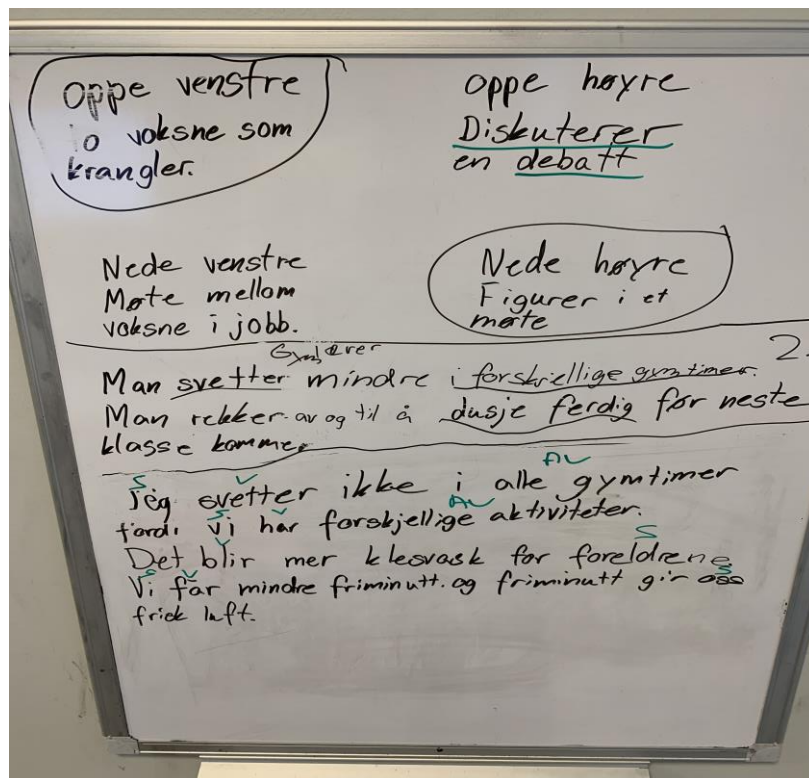 Oppe venstre
to voksne som
krangler.
oppe høyre
Diskuterer
en debatt
Nede venstre
Møte mellom
voksne i jobb.
Nede høyre
Figurer i et
møte
2.
Man svetter mindre i forskjellige gymtimer.
Man rekker av og til å dusje ferdig før neste
klasse kommer
S V AV
Jeg svetter ikke i alle gymtimer
S V AV
fordi vi har forskjellige aktiviteter.
V S
Det blir mer klesvask for foreldrene.
S V S
Vi får mindre friminutt. og friminutt gir oss
frisk luft.